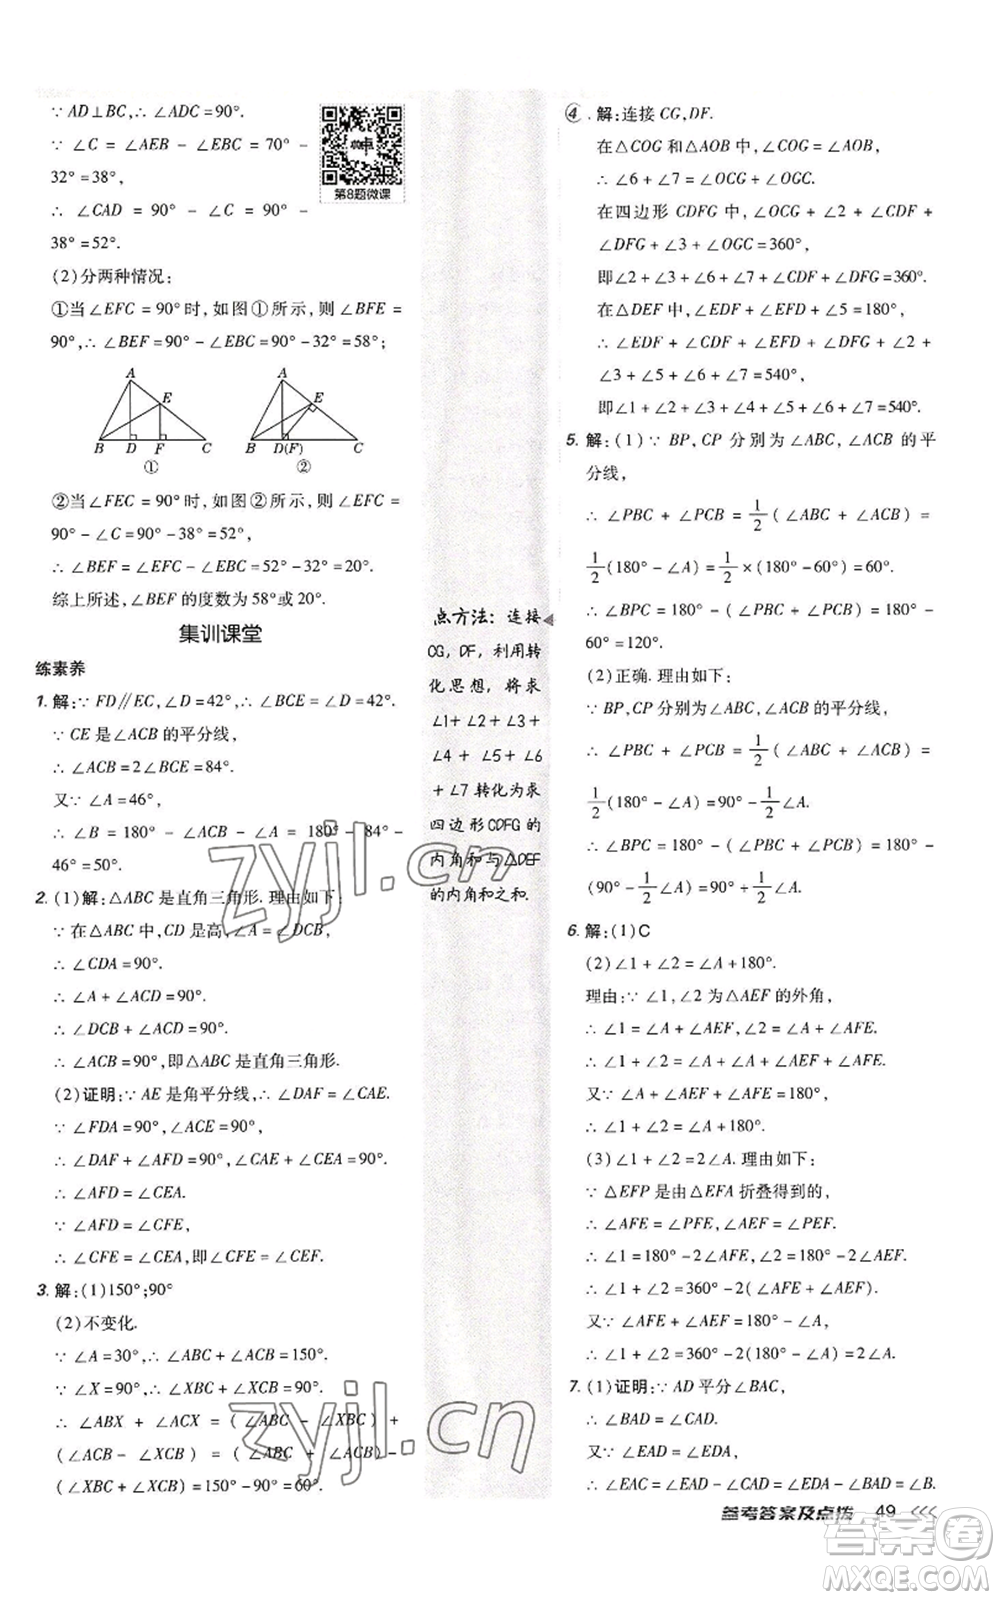 ∵ AD⊥BC,∴ ∠ADC = 90°.
∵ ∠C = ∠AEB − ∠EBC = 70° −
32° = 38°,
∴ ∠CAD = 90° − ∠C = 90° −
38° = 52°.
第8题微课
(2)分两种情况:
①当∠EFC = 90°时,如图①所示,则∠BFE =
90°,∴ ∠BEF = 90° − ∠EBC = 90° − 32° = 58°;
A
E
B D F C
①
A
E
B D(F) C
②
②当∠FEC = 90°时,如图②所示,则∠EFC =
90° − ∠C = 90° − 38° = 52°,
∴ ∠BEF = ∠EFC − ∠EBC = 52° − 32° = 20°.
综上所述,∠BEF 的度数为58°或20°.
集训课堂
练素养
1. 解:∵ FD∥EC,∠D = 42°,∴ ∠BCE = ∠D = 42°.
∵ CE 是∠ACB 的平分线,
∴ ∠ACB = 2∠BCE = 84°.
又∵ ∠A = 46°,
∴ ∠B = 180° − ∠ACB − ∠A = 180° − 84° −
46° = 50°.
2. (1)解:△ABC 是直角三角形. 理由如下:
∵ 在△ABC 中,CD 是高,∠A = ∠DCB,
∴ ∠CDA = 90°.
∴ ∠A + ∠ACD = 90°.
∴ ∠DCB + ∠ACD = 90°.
∴ ∠ACB = 90°,即△ABC 是直角三角形.
(2)证明:∵ AE 是角平分线,∴ ∠DAF = ∠CAE.
∵ ∠FDA = 90°,∠ACE = 90°,
∴ ∠DAF + ∠AFD = 90°,∠CAE + ∠CEA = 90°.
∴ ∠AFD = ∠CEA.
∵ ∠AFD = ∠CFE,
∴ ∠CFE = ∠CEA,即∠CFE = ∠CEF.
3. 解:(1)150°;90°
(2)不变化.
∵ ∠A = 30°,∴ ∠ABC + ∠ACB = 150°.
∵ ∠X = 90°,∴ ∠XBC + ∠XCB = 90°.
∴ ∠ABX + ∠ACX = (∠ABC − ∠XBC) +
(∠ACB − ∠XCB) = (∠ABC + ∠ACB) −
(∠XBC + ∠XCB) = 150° − 90° = 60°.
点方法: 连接
CG,DF, 利用转
化思想, 将求
∠1+ ∠2 + ∠3 +
∠4 + ∠5 + ∠6
+ ∠7 转化为求
四边形CDFG 的
内角和与△DEF
的内角和之和.
④. 解:连接 CG,DF.
在△COG 和△AOB 中,∠COG = ∠AOB,
∴ ∠6 + ∠7 = ∠OCG + ∠OGC.
在四边形 CDFG 中,∠OCG + ∠2 + ∠CDF +
∠DFG + ∠3 + ∠OGC = 360°,
即∠6 + ∠7 + ∠2 + ∠CDF + ∠DFG + ∠3 = 360°.
在△DEF 中,∠EDF + ∠EFD + ∠5 = 180°,
∴ ∠EDF + ∠1 + ∠2 + ∠3 + ∠4 + ∠EFD + ∠5 + ∠6 + ∠7 = 540°,
即∠1 + ∠2 + ∠3 + ∠4 + ∠5 + ∠6 + ∠7 = 540°.
5. 解:(1)∵ BP,CP 分别为∠ABC,∠ACB 的平
分线,
∴ ∠PBC + ∠PCB = 1/2(∠ABC + ∠ACB) =
1/2(180° − ∠A) = 1/2 × (180° − 60°) = 60°.
∴ ∠BPC = 180° − (∠PBC + ∠PCB) = 180° −
60° = 120°.
(2)正确. 理由如下:
∵ BP,CP 分别为∠ABC,∠ACB 的平分线,
∴ ∠PBC + ∠PCB = 1/2(∠ABC + ∠ACB) =
1/2(180° − ∠A) = 90° − 1/2∠A.
∴ ∠BPC = 180° − (∠PBC + ∠PCB) = 180° −
(90° − 1/2∠A) = 90° + 1/2∠A.
6. 解:(1)C
(2)∠1 + ∠2 = ∠A + 180°.
理由:∵ ∠1,∠2 为△AEF 的外角,
∴ ∠1 = ∠A + ∠AEF,∠2 = ∠A + ∠AFE.
∴ ∠1 + ∠2 = ∠A + ∠AEF + ∠A + ∠AFE.
又∵ ∠A + ∠AEF + ∠AFE = 180°,
∴ ∠1 + ∠2 = ∠A + 180°.
(3)∠1 + ∠2 = 2∠A. 理由如下:
∵ △EFP 是由△EFA 折叠得到的,
∴ ∠AFE = ∠PFE,∠AEF = ∠PEF.
∴ ∠1 = 180° − 2∠AFE,∠2 = 180° − 2∠AEF.
∴ ∠1 + ∠2 = 360° − 2(∠AFE + ∠AEF).
又∵ ∠A + ∠AFE + ∠AEF = 180°,
∴ ∠1 + ∠2 = 360° − 2(180° − ∠A) = 2∠A.
7. (1)证明:∵ AD 平分∠BAC,
∴ ∠BAD = ∠CAD.
又∵ ∠EAD = ∠EDA,
∴ ∠EAC = ∠EAD − ∠CAD = ∠EDA − ∠BAD = ∠B.
参考答案及点拨 49
zyjl.cn
zyjl.cn
答案圈
MXQE.COM